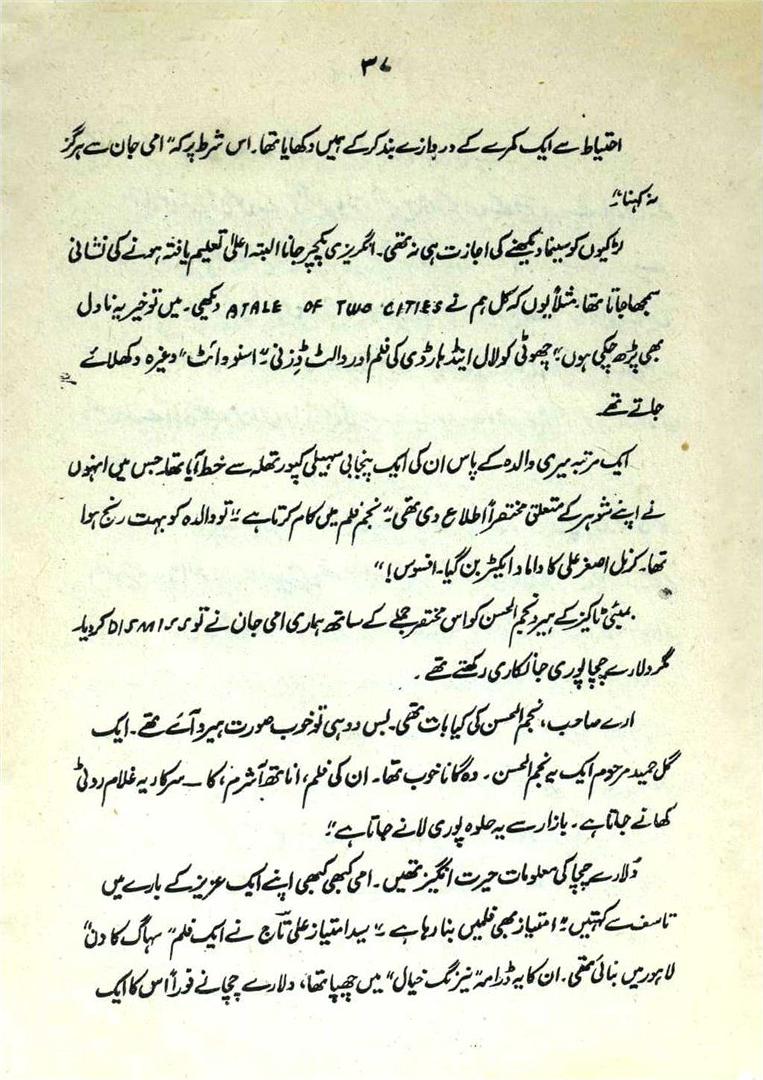 ۳۷
احتیاط سے ایک کمرے کے دروازے بند کر کے ہمیں دکھایا تھا۔ اس شرط پر کہ "امی جان سے ہرگز
نہ کہنا"۔
لڑکیوں کو سینما دیکھنے کی اجازت ہی نہ تھی۔ انگریزی پکچر جانا البتہ اعلیٰ تعلیم یافتہ ہونے کی نشانی
سمجھا جاتا تھا۔ مثلاً یوں کہ کل ہم نے A TALE OF TWO CITIES دیکھی۔ میں تو خیر یہ ناول
بھی پڑھ چکی ہوں"۔ چھوٹی کو لال اینڈ ہارڈی کی فلم اور والٹ ڈزنی۔ "اسنو وائٹ" وغیرہ دکھلائے
جاتے تھے۔
ایک مرتبہ میری والدہ کے پاس ان کی ایک پنجابی سہیلی کپورتھلہ سے خط آیا تھا۔ جس میں انہوں
نے اپنے شوہر کے متعلق مختصراً اطلاع دی تھی۔ "نجم فلم میں کام کرتا ہے"۔ تو والدہ کو بہت رنج ہوا
تھا۔ کرنل اصغر علی کا داماد ایکٹر بن گیا۔ افسوس!"
بمبئی ٹاکیز کے ہیرو نجم الحسن کو اس مختصر جملے کے ساتھ ہماری امی جان نے تو DISMISS کر دیا۔
مگر دلارے چچا پوری جانکاری رکھتے تھے۔
ارے صاحب، نجم الحسن کی کیا بات تھی۔ بس دو ہی تو خوب صورت ہیرو آئے تھے۔ ایک
گل حمید مرحوم ایک یہ نجم الحسن۔ وہ گانا خوب تھا۔ ان کی فلم، اناتھ آشرم، کا — سرکار یہ غلام روٹی
کھانے جاتا ہے۔ بازار سے یہ حلوہ پوری لانے جاتا ہے"۔
دُلارے چچا کی معلومات حیرت انگیز تھیں۔ امی کبھی کبھی اپنے ایک عزیز کے بارے میں
تاسف سے کہتیں۔ "امتیاز بھی فلمیں بنا رہا ہے۔" سید امتیاز علی تاج نے ایک فلم "سہاگ کا دن"
لاہور میں بنائی تھی۔ ان کا یہ ڈرامہ "نیرنگ خیال" میں چھپا تھا، دلارے چچا نے فوراً اس کا ایک